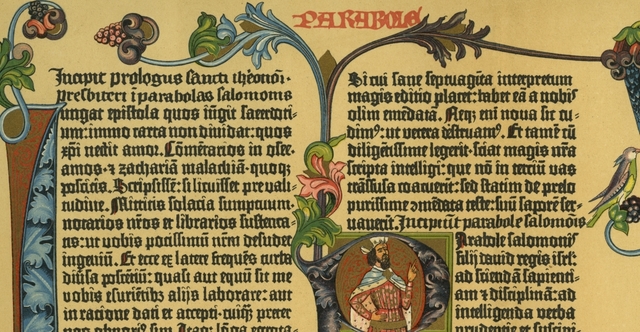 PARABOLE
Incipit prologus sancti iheronimi
presbiteri ī parabolas salomonis
Iungat epistola quos iūgit sacerdoti-
um: immo carta non diuidat: quos
xp̄i nectit amor. Cōmētarios in osee.
amos. ⁊ zachariā malachiā. quoqꝫ
poscitis. Scripsissē: si licuisset pre vali-
tudine. Mittitis solacia sumptuum.
notarios nr̄os et librarios sustenta-
tis: ut vobis potissimū nr̄m desudet
ingeniū. Et ecce ex latere frequēs turba
diūsa poscētiū: quasi aut equū sit me
vobis esuriētibꝫ alijs laborare: aut
in ratione dati et accepti. cuiqꝫ preter
vos obnoxiꝰ sim. Itaqꝫ lōga egrota-
Si cui sane septuagīta interpretum
magis editio placet: habet eā a nobis
olim emēdatā. Neqꝫ eni noua sic cu-
dimꝰ: ut vetera destruamꝰ. Et tamē cū
diligētissime legerit. sciat magis nr̄a
scripta intelligi: que nō in terciū vas
trāsfusa coacuerīt: sed statim de prelo
purissime ꝯmēdata teste: suū saporē ser-
vauerīt. Incipiūt parabole salomōis
Parabole salomonis
filij david regis isrl̄:
ad sciendā sapienti-
am ⁊ disciplinā: ad
intelligenda verba
prudentie et suscipi-